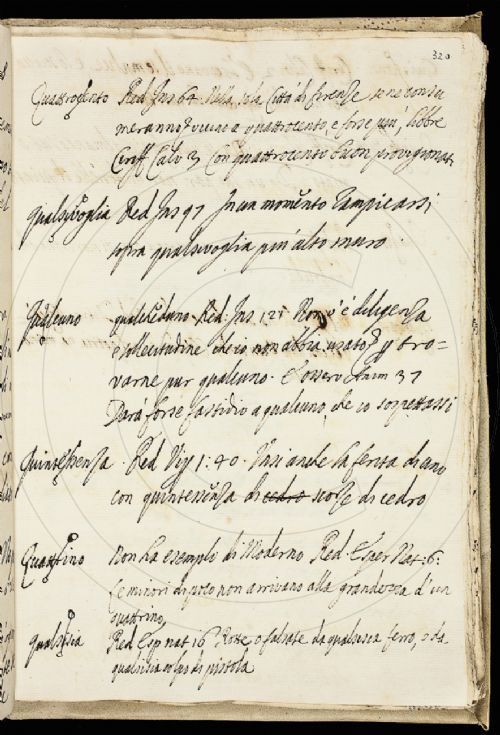 320
Quattrocento Red Ins 64. Nela sola Città di Firenze se ne consu
meranno vicino a quattrocento, e forse più, libbre
Ciriff Calv 3 Con quattrocento buon provigionati
Qualsivoglia Red Ins 97 In un momento rampicarsi
sopra qualsivoglia più alto muro
Qualcuno qualcheduno. Red: Ins. 121 Non v'è diligenza
e sollecitudine ch'io non abbia usato p tro-
varne pur qualcuno. E Osserv Anim 37
Darà forse fastidio a qualcuno, che io sospettassi
Quintessenza. Red Vip 1: 40. Unsi anche la ferita di uno
con quintessenza di cedro scorze di cedro
Quattrino Non ha esempli di Moderno Red. Esper Nat: 6:
Le minori di poco non arrivano alla grandezza d'un
quattrino,
Qualsisia Red Esp nat 16 Rotte o falsate da qualsisia ferro, o da
qualsisia colpo di pistola